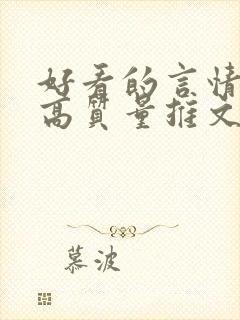 好看的言情
高质量推文
慕波